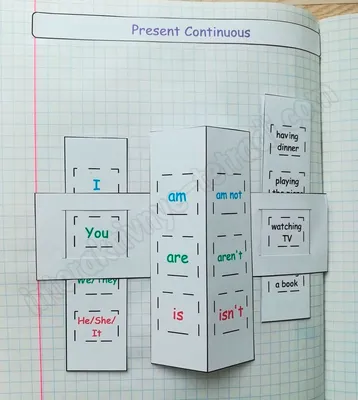 Present Continuous
having
dinner
playing
I
am
am not
You
watching
TV
are
aren't
We/They
a book
He/She/
It
is
isn't